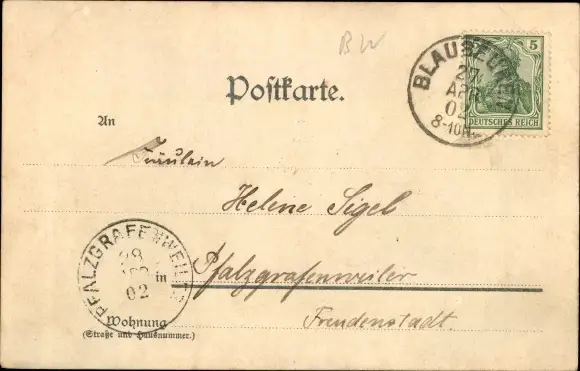 BW
Postkarte.
5
DEUTSCHES REICH
27
APR
02
8-10N.
An
Fräulein
Helene Sigel
PFALZGRAFENWEILER
28
APR
02
in Pfalzgrafenweiler
Freudenstadt.
Wohnung
(Straße und Hausnummer.)